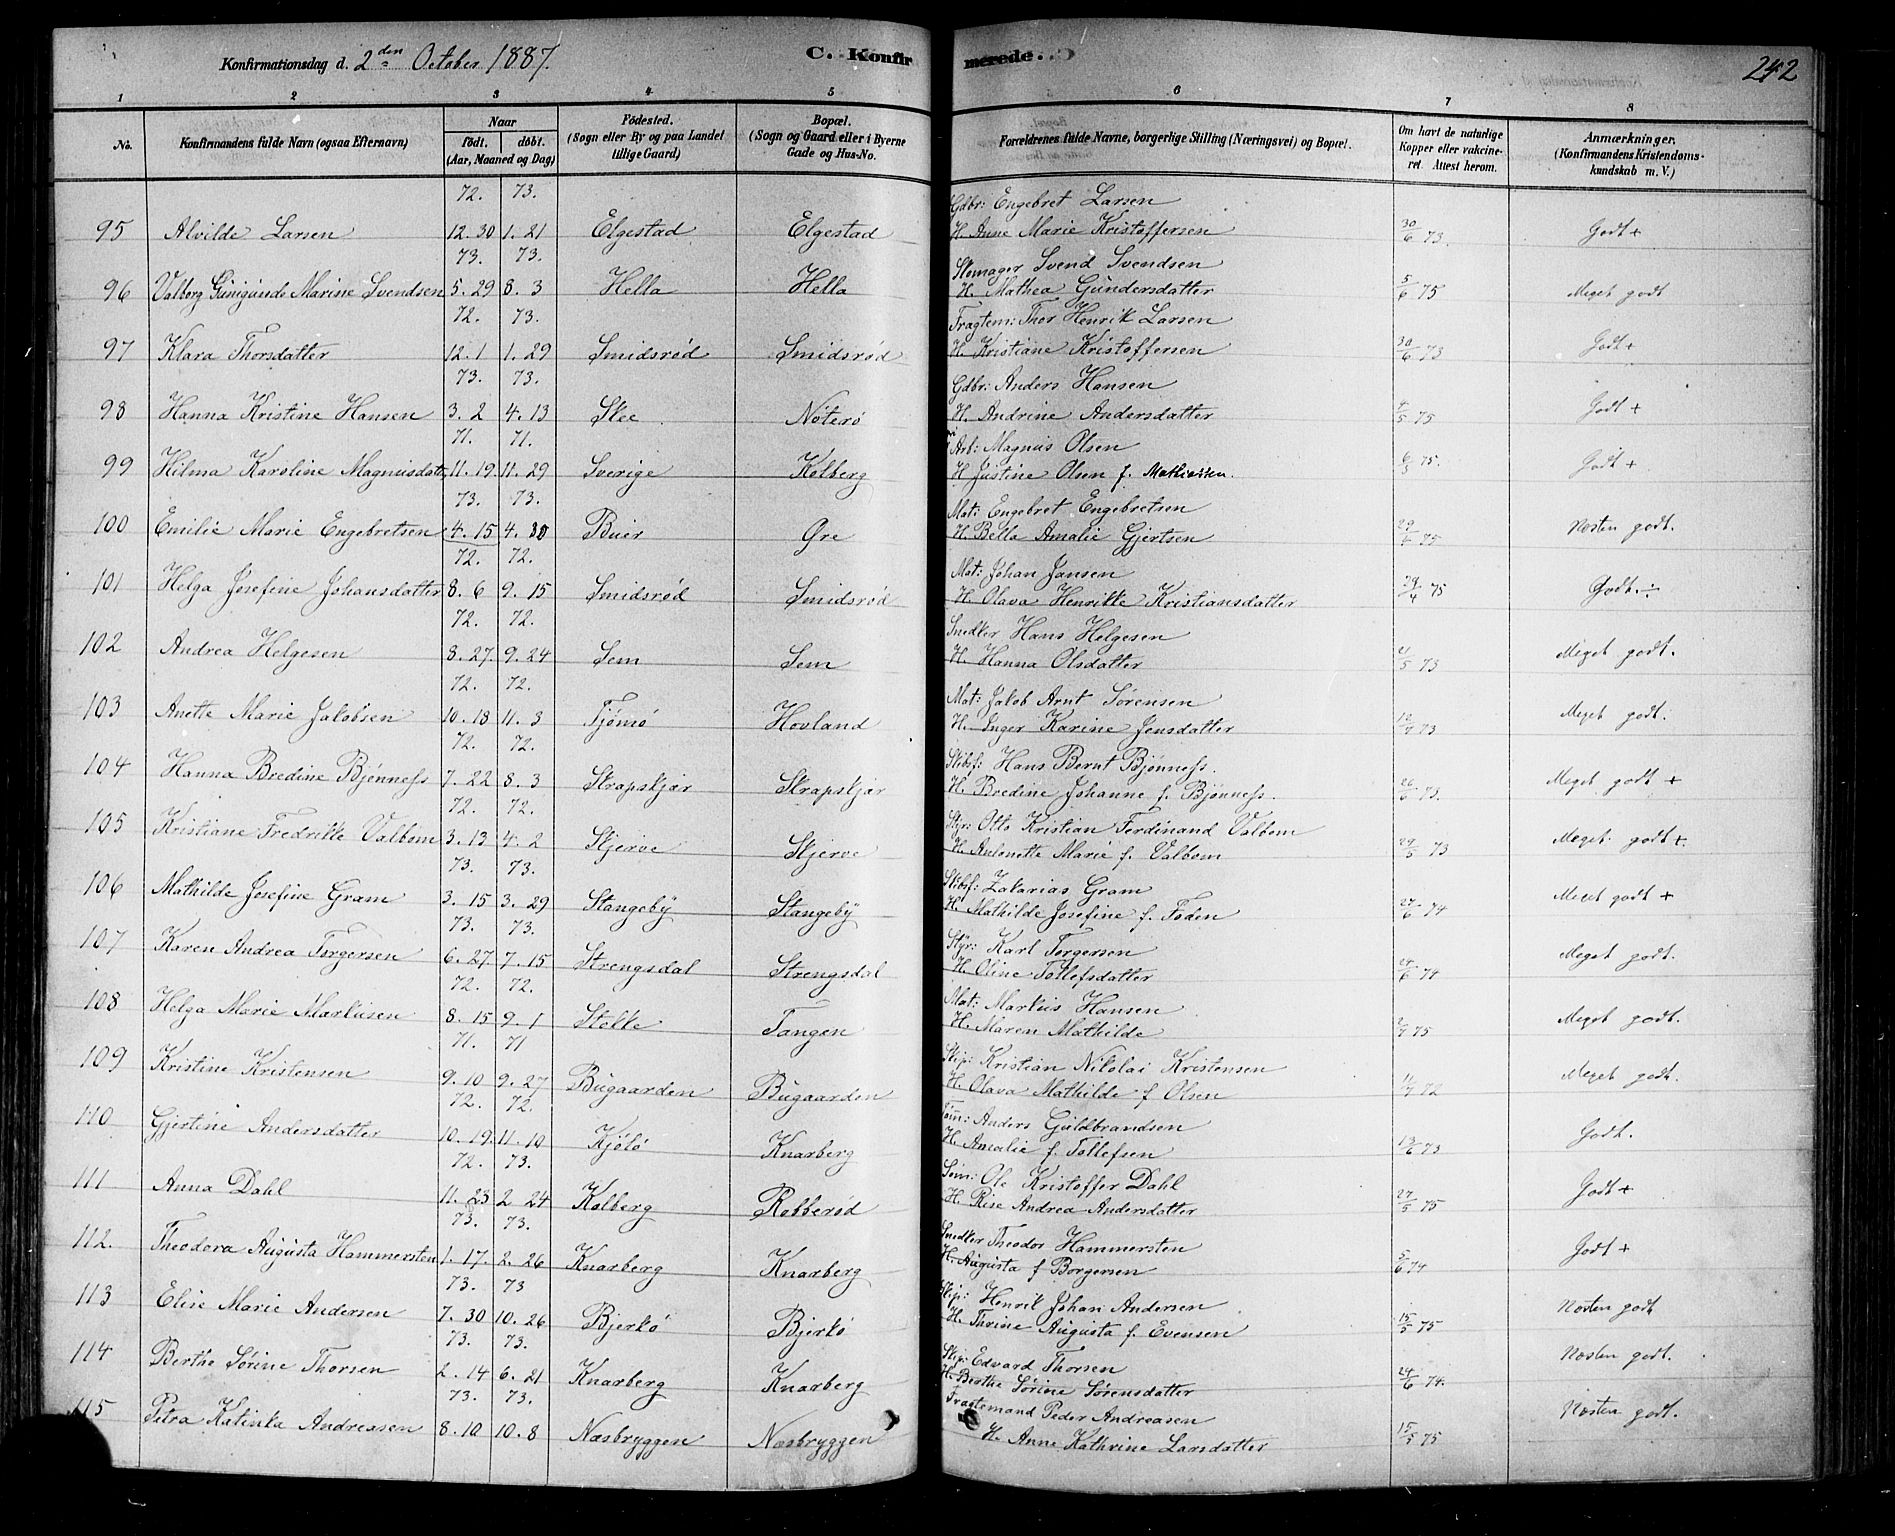 Konfirmationsdag d. 2den October 1887. C. Konfirmerede. 242
1 2 3 4 5 6 7 8
No. Konfirmandens fulde Navn (ogsaa Efternavn) Naar født. døbt. (Aar, Maaned og Dag) Fødested. (Sogn eller By og paa Landet tillige Gaard) Bopæl. (Sogn og Gaard eller i Byerne Gade og Hus-No. Forældrenes fulde Navne, borgerlige Stilling (Næringsvei) og Bopæl. Om havt de naturlige Kopper eller vakcineret. Attest herom. Anmærkninger. (Konfirmandens Kristendomskundskab m. V.)
72. 73. Gdbr: Engebret Larsen
95 Alvilde Larsen 12. 30 1. 21 Elgestad Elgestad H. Anne Marie Kristoffersen 30/6 73. Godt +
73. 73. Skomager Svend Svendsen
96 Valborg Gunigunde Marine Svendsen 5. 29 8. 3 Hella Hella H. Mathea Gundersdatter 5/6 75 Meget godt
72. 73. Fragtem: Thor Henrik Larsen
97 Klara Thorsdatter 12. 1 1. 29 Smidsrød Smidsrød H. Kristiane Kristoffersen 30/6 73 Godt +
73. 73. Gdbr: Anders Hansen
98 Hanna Kristine Hansen 3. 2 4. 13 Skee Nøterø H. Andrine Andersdatter /5 75 Godt +
71. 71. Arb: Magnus Olsen
99 Hilma Karoline Magnusdatr 11. 19. 11. 29 Sverige Kolberg H. Justine Olsen f. Mathiassen. 6/5 75. Godt +
73. 73. Mat: Engebret Engebretsen
100 Emilie Marie Engebretsen 4. 15 4. 30 Buer Øre H. Bella Amalie Gjertsen 29/6 75 Nesten godt.
72. 72. Mat: Johan Jansen
101 Helga Josefine Johansdatter 8. 6 9. 15 Smidsrød Smidsrød H. Olava Henrikke Kristiansdatter 29/4 75 Godt. ÷
72. 72. Snedker Hans Helgesen
102 Andrea Helgesen 8. 27. 9. 24 Sem Sem H. Hanna Olsdatter /5 73 Meget godt.
72. 72. Mat: Jakob Arnt Sørensen
103 Anette Marie Jakobsen 10. 18 11. 3 Tjømø Hovland H. Inger Karine Jensdatter 73 Meget godt.
72. 72. Skibsf: Hans Bernt Bjønness.
104 Hanna Bredine Bjønness 7. 22 8. 3 Skrapskjær Skrapskjær H. Bredine Johanne f. Bjønness. 26/6 73. Meget godt +
72. 72. Styr: Otto Kristian Ferdinand Valbom
105 Kristiane Fredrikke Valbom 3. 13 4. 2 Skjerve Skjerve H. Antonette Marie f. Valbom 29/5 73 Meget godt +
73. 73. Skibsf: Zakarias Gram
106 Mathilde Josefine Gram 3. 15 3. 29 Stangeby Stangeby H. Mathilde Josefine f. Foden 27/6 74 Meget godt +
73. 73. Styr: Karl Torgersen
107 Karen Andrea Torgersen 6. 27 7. 15 Strengsdal Strengsdal H. Oline Tollefsdatter 24/6 74 Meget godt.
72. 72. Mat: Markus Hansen
108 Helga Marie Markusen 8. 15 9. 1 Stokke Tangen H. Maren Mathilde 75 Meget godt.
71. 71 Skip: Kristian Nikolai Kristensen
109 Kristine Kristensen 9. 10 9. 27 Bugaarden Bugaarden H. Olava Mathilde f Olsen 72 Meget godt.
72. 72. Tøm: Anders Guldbrandsen
110 Gjertine Andersdatter 10. 19. 11. 10 Kjølø Knarberg H. Amalie f. Tollefsen 13/6 73 Godt.
72. 73. Søm: Ole Kristoffer Dahl
111 Anna Dahl 11. 23 2. 24 Kolberg Robberød H. Rise Andrea Andersdatter 27/5 75 Godt +
73. 73. Snedker Theodor Hammersten
112. Theodora Augusta Hammersten 1. 17. 2. 26 Knarberg Knarberg H. Augusta f Borgersen 5/6 74 Godt +
73. 73 Skip: Henrik Johan Andersen
113 Elise Marie Andersen 7. 30 10. 26 Bjerkø Bjerkø H. Thrine Augusta f. Evensen 15/5 75 Nesten godt
73. 73. Skip: Edvard Thorsen
114 Berthe Sørine Thorsen 2. 14 6. 21 Knarberg Knarberg H. Berthe Sørine Sørensdatter 24/6 74. Nesten godt.
73. 73. Fragtemand Peder Andreasen
115 Petra Katinka Andreasen 8. 10 10. 8 Næsbryggen Næsbryggen H. Anne Kathrine Larsdatter 15/5 75 Nesten godt.